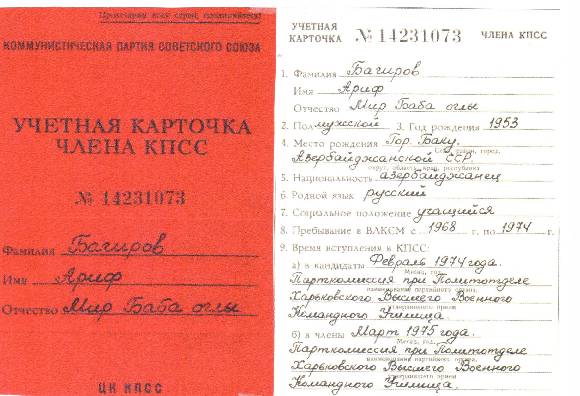 Пролетарии всех стран, соединяйтесь!
КОММУНИСТИЧЕСКАЯ ПАРТИЯ СОВЕТСКОГО СОЮЗА
УЧЕТНАЯ КАРТОЧКА
ЧЛЕНА КПСС
№ 14231073
Фамилия Багиров
Имя Ариф
Отчество Мир Баба оглы
ЦК КПСС
УЧЕТНАЯ
КАРТОЧКА № 14231073 ЧЛЕНА КПСС
1. Фамилия Багиров
Имя Ариф
Отчество Мир Баба оглы
2. Пол мужской 3. Год рождения 1953
4. Место рождения Гор. Баку.
Село, район, город,
Азербайджанской ССР
округ, область, край, республика
5. Национальность азербайджанец
6. Родной язык русский
7. Социальное положение учащийся
8. Пребывание в ВЛКСМ с 1968 г. по 1974 г.
9. Время вступления в КПСС:
а) в кандидаты Февраль 1974 года.
Месяц, год,
Парткомиссия при Политотделе
наименование партийного органа,
Харьковского Высшего Военного
утвердившего прием
Командного Училища.
б) в члены Март 1975 года.
Месяц, год,
Парткомиссия при Политотделе
наименование партийного органа,
Харьковского Высшего Военного
утвердившего прием
Командного Училища.